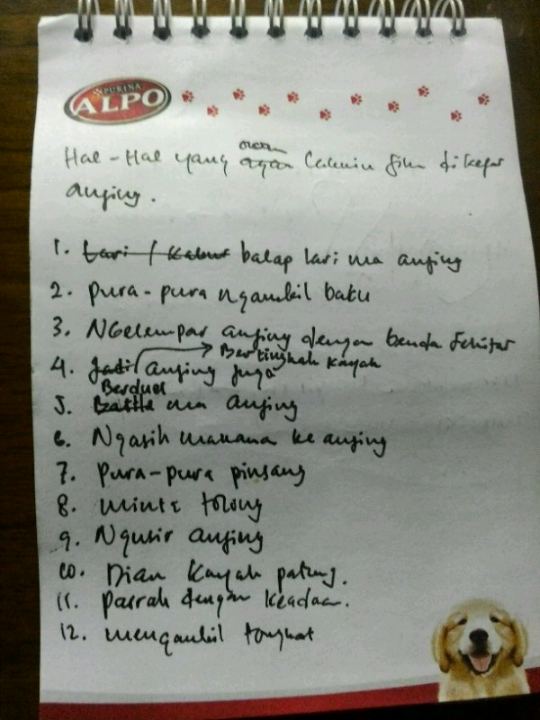 PURINA
ALPO
Hal-Hal yang orang lakuin jika dikejar
anjing.
1. Lari / Kabur balap lari ma anjing
2. pura-pura ngambil batu
3. Ngelempar anjing dengan benda sekitar
4. Jadi anjing juga Bertingkah kayak
5. Berduel ma anjing
6. Ngasih makana ke anjing
7. pura-pura pinsang
8. minta tolong
9. Ngusir anjing
10. Diam kayak patung.
11. pasrah dengan keadaan.
12. mengambil tongkat